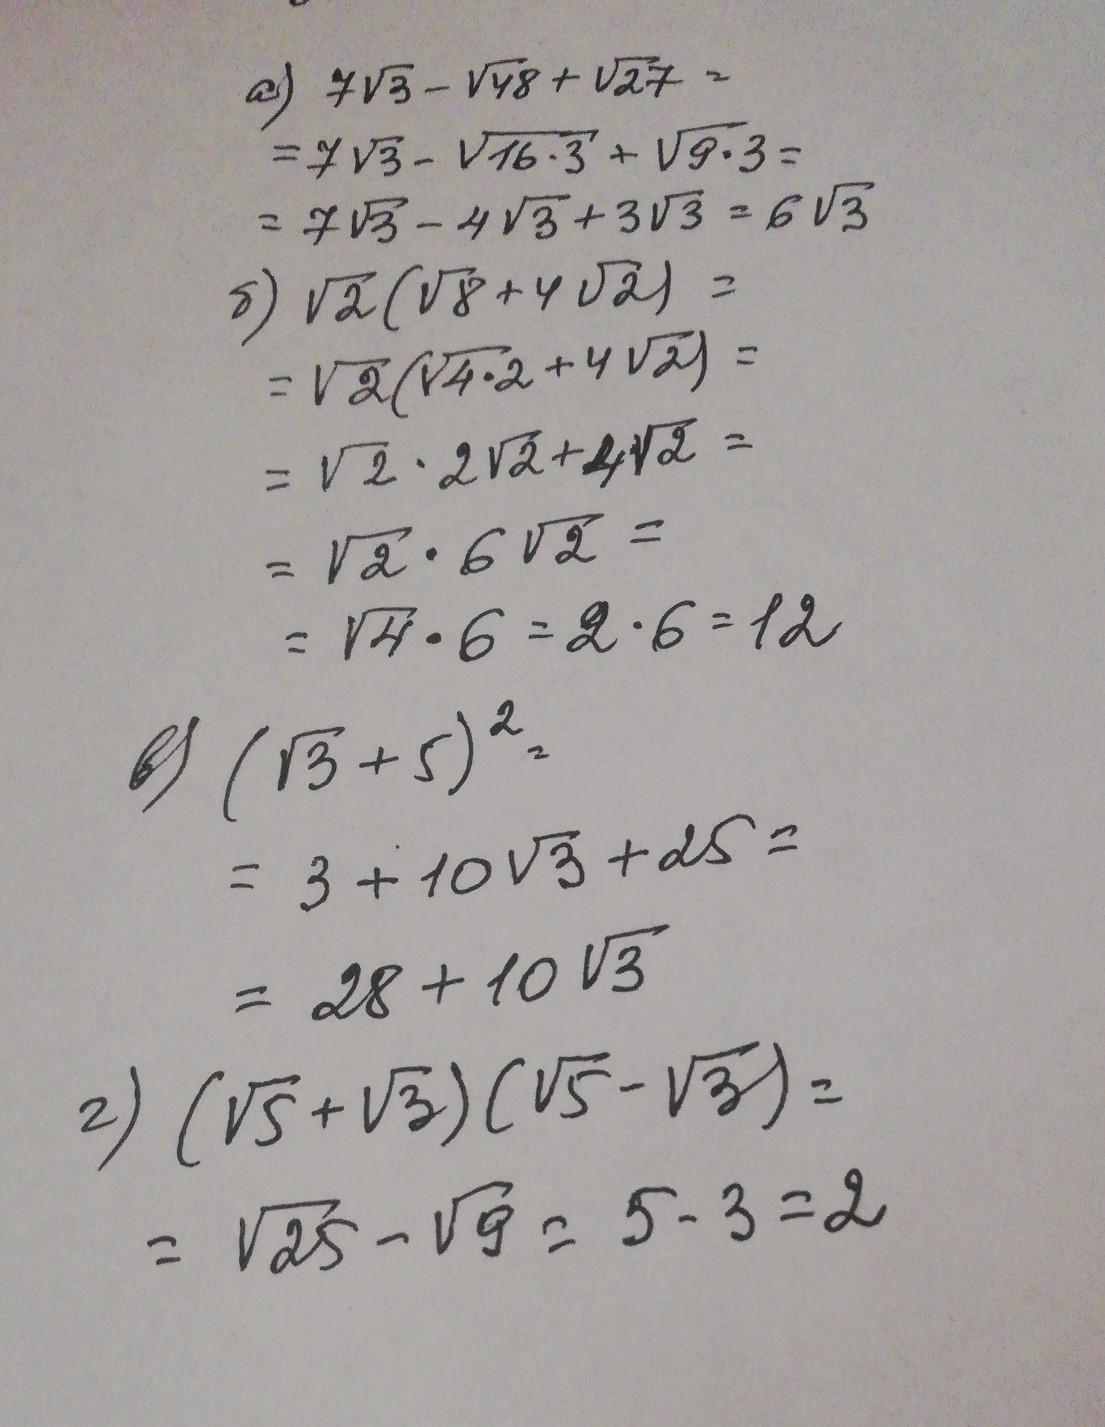 а) 7√3 - √48 + √27 =
= 7√3 - √16·3 + √9·3 =
= 7√3 - 4√3 + 3√3 = 6√3
б) √2(√8 + 4√2) =
= √2(√4·2 + 4√2) =
= √2 · 2√2 + 4√2 =
= √2 · 6√2 =
= √4 · 6 = 2 · 6 = 12
в) (√3 + 5)² =
= 3 + 10√3 + 25 =
= 28 + 10√3
г) (√5 + √3)(√5 - √3) =
= √25 - √9 = 5 - 3 = 2